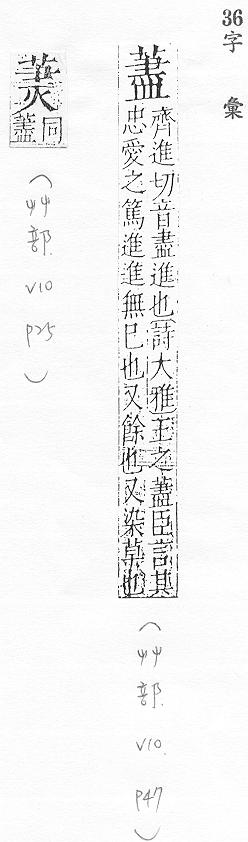 36字彙
藎
齊進切音盡進也詩大雅王之藎臣言其
忠愛之篤進進無已也又餘也又染草也
(艸部 V10 P47)
䒞
同藎
(艸部 V10 P25)